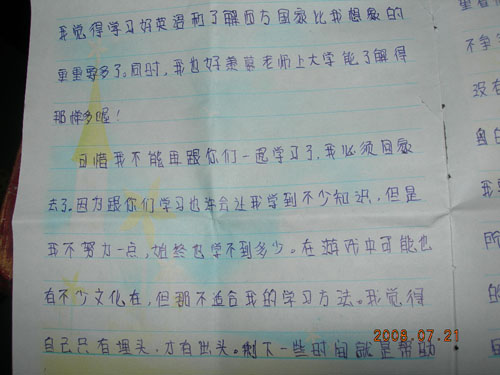 我觉得学习好英语和了解西方国家比我想象的
重要多了。同时，我也好羡慕老师上大学能了解得
那样多喔！
可惜我不能再跟你们一起学习了，我必须回家
去了。因为跟你们学习也许会让我学到不少知识，但是
我不努力一点，始终也学不到多少。在游戏中可能也
有不少文化在，但那不适合我的学习方法。我觉得
自己只有埋头，才有出头。剩下一些时间就是帮助
不
没有
自己
我
所
的
2008.07.21